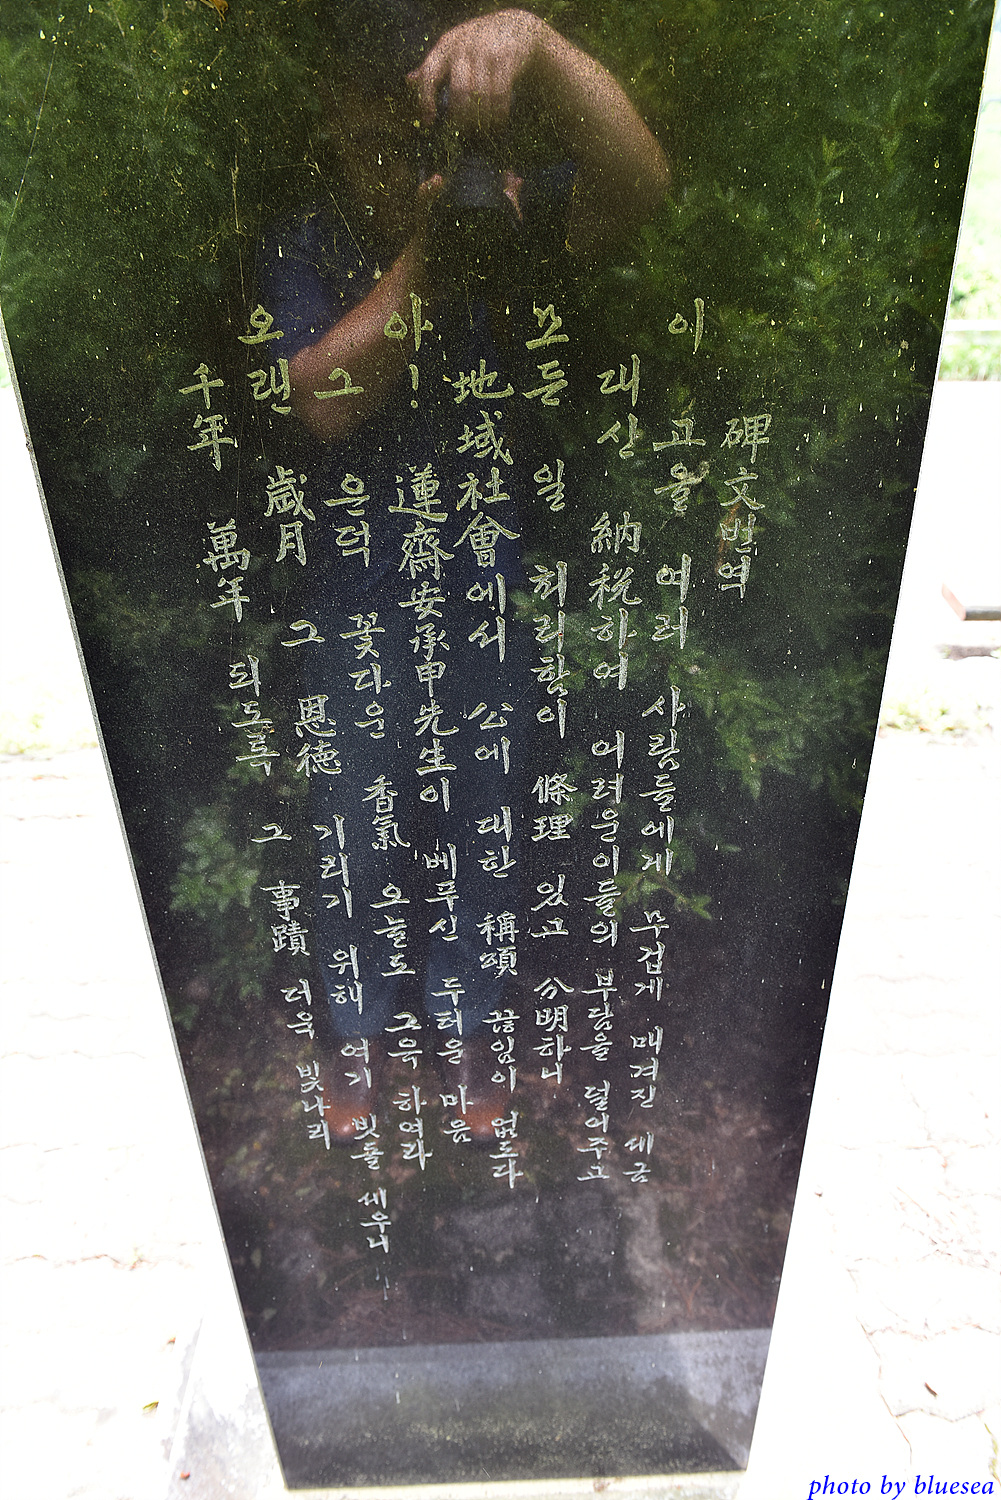 碑文번역
이 고을 여러 사람들에게 무겁게 매겨진 세금
대산 納税하여 어려운이들의 부담을 덜어주고
모든 일 처리함이 條理 있고 分明하니
地域社會에서 公에 대한 稱頌 끊임이 없도다
아! 蓮齋安承甲先生이 베푸신 두터운 마음
그 은덕 꽃다운 香氣 오늘도 그윽하여라
오랜 歲月 그 恩德 기리기 위해 여기 빗돌 세우니
千年 萬年 되도록 그 事蹟 더욱 빛나리
photo by bluesea